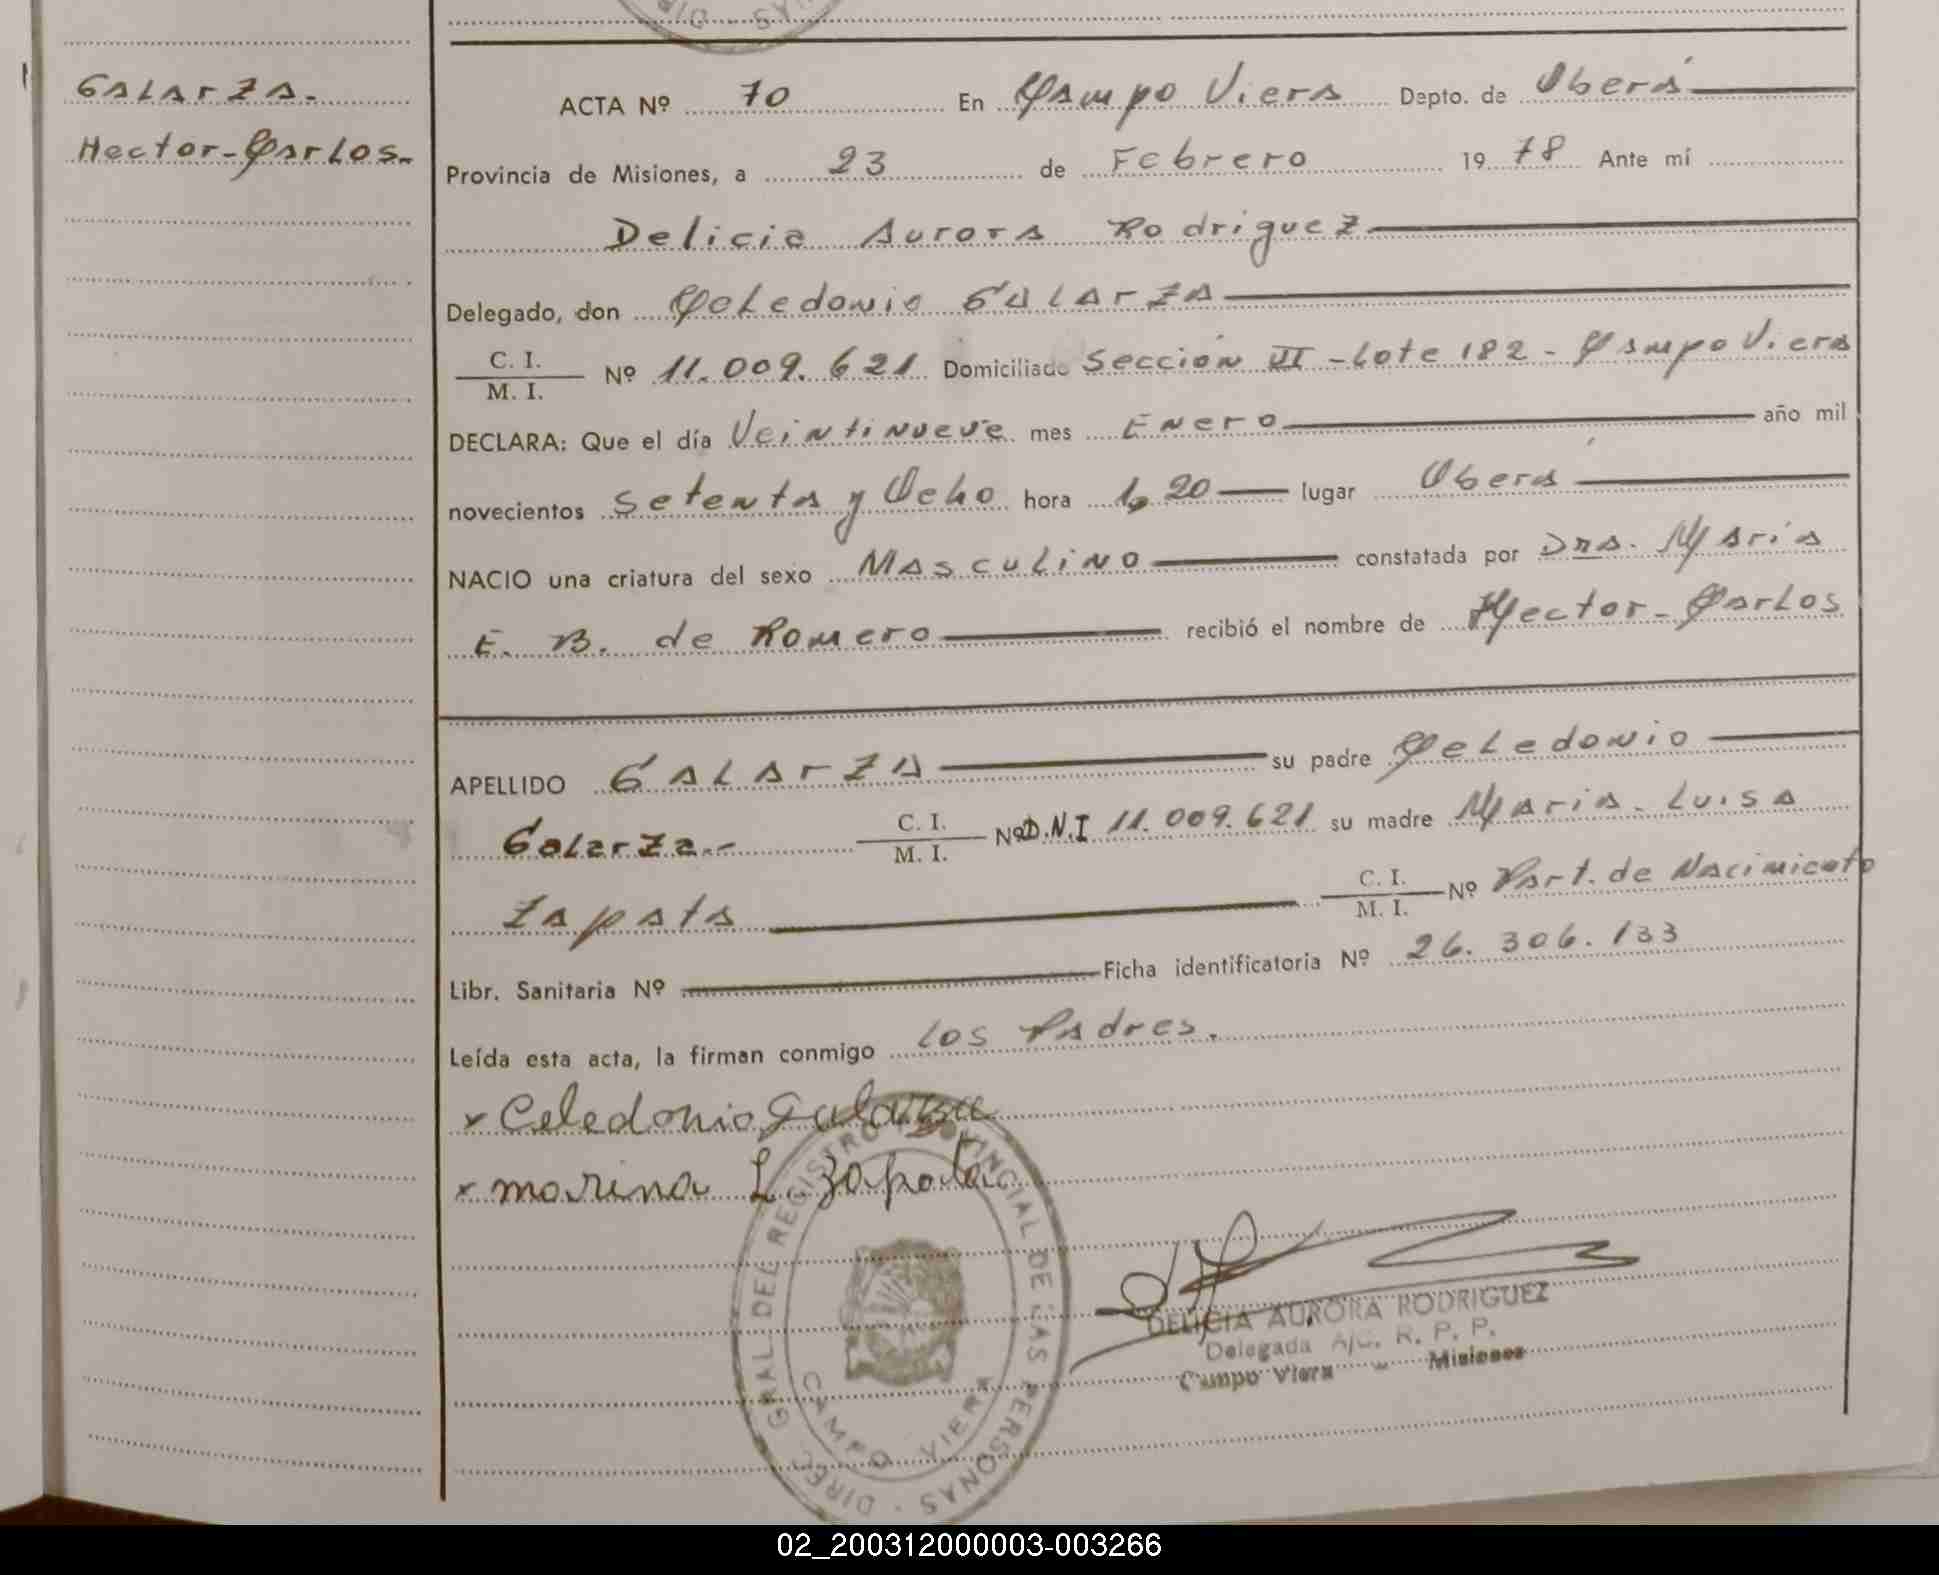 GALArZA.
Hector-Carlos.
ACTA Nº 70 En Campo Viera Depto. de Oberá
Provincia de Misiones, a 23 de Febrero 1978 Ante mí
Delicia Aurora Rodriguez
Delegado, don Celedonio GALArZA
C. I.
M. I. Nº 11.009.621 Domiciliado Sección VI - Lote 182 - Campo Viera
DECLARA: Que el día Veintinueve mes Enero año mil
novecientos Setenta y Ocho hora 1,20 lugar Oberá
NACIO una criatura del sexo Masculino constatada por Dra. Maria
E. B. de Romero recibió el nombre de Hector-Carlos
APELLIDO GALArZA su padre Celedonio
Galarza.- C. I.
M. I. Nº D.N.I 11.009.621 su madre Maria-Luisa
Zapata C. I.
M. I. Nº Part. de Nacimiento
Libr. Sanitaria Nº Ficha identificatoria Nº 26.306.133
Leída esta acta, la firman conmigo Los Padres.
x Celedonio Galarza
x marina L. Zapata
DIREC. GRAL. DEL REGISTRO PROVINCIAL DE LAS PERSONAS
CAMPO VIERA
DELICIA AURORA RODRIGUEZ
Delegada A/C. R. P. P.
Campo Viera - Misiones
02_200312000003-003266